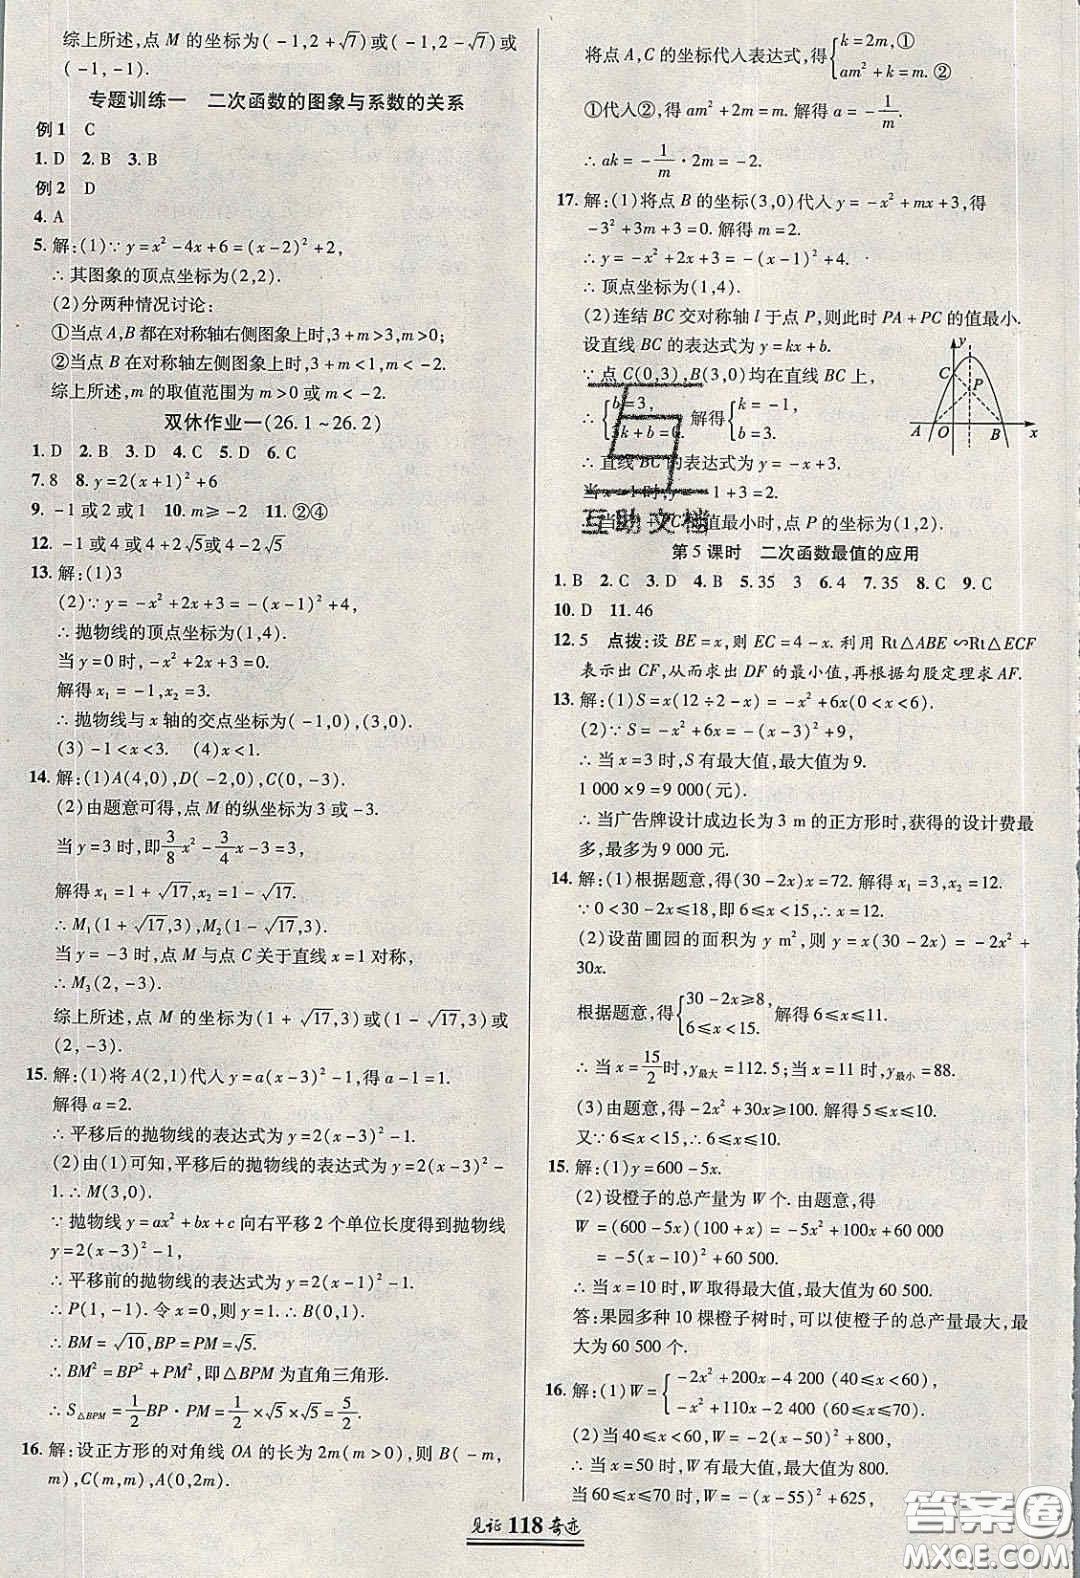 综上所述,点 M 的坐标为(-1,2+√7)或(-1,2-√7)或
(-1,-1).
专题训练一 二次函数的图象与系数的关系
例1 C
1. D 2. B 3. B
例2 D
4. A
5. 解:(1)∵y=x²-4x+6=(x-2)²+2,
∴其图象的顶点坐标为(2,2).
(2)分两种情况讨论:
①当点 A,B 都在对称轴右侧图象上时,3+m>3,m>0;
②当点 B 在对称轴左侧图象上时,3+m<1,m<-2.
综上所述,m 的取值范围为 m>0 或 m<-2.
双休作业一(26.1~26.2)
1. D 2. B 3. D 4. A 5. D 6. C
7. 8 8. y=2(x+1)²+6
9. -1或2或1 10. m≥-2 11. ②④
12. -1或4或4+2√5或4-2√5
13. 解:(1)3
(2)∵y=-x²+2x+3=-(x-1)²+4,
∴抛物线的顶点坐标为(1,4).
当 y=0 时,-x²+2x+3=0.
解得 x₁=-1,x₂=3.
∴抛物线与 x 轴的交点坐标为(-1,0),(3,0).
(3)-1<x<3. (4)x<1.
14. 解:(1)A(4,0),D(-2,0),C(0,-3).
(2)由题意可得,点 M 的纵坐标为 3 或-3.
当 y=3 时,即3/8x²-3/4x-3=3,
解得 x₁=1+√17,x₂=1-√17.
∴M₁(1+√17,3),M₂(1-√17,3).
当 y=-3 时,点 M 与点 C 关于直线 x=1 对称,
∴M₃(2,-3).
综上所述,点 M 的坐标为(1+√17,3)或(1-√17,3)或
(2,-3).
15. 解:(1)将 A(2,1)代入 y=a(x-3)²-1,得 a-1=1.
解得 a=2.
∴平移后的抛物线的表达式为 y=2(x-3)²-1.
(2)由(1)可知,平移后的抛物线的表达式为 y=2(x-3)²-
1.∴M(3,0).
∵抛物线 y=ax²+bx+c 向右平移 2 个单位长度得到抛物线
y=2(x-3)²-1,
∴平移前的抛物线的表达式为 y=2(x-1)²-1.
∴P(1,-1).令 x=0,则 y=1.∴B(0,1).
∴BM=√10,BP=PM=√5.
∴BM²=BP²+PM²,即△BPM 为直角三角形.
∴S△BPM=1/2BP·PM=1/2×√5×√5=5/2.
16. 解:设正方形的对角线 OA 的长为 2m(m>0),则 B(-m,
m),C(m,m),A(0,2m).
将点 A,C 的坐标代入表达式,得{k=2m,①
am²+k=m.②
①代入②,得 am²+2m=m.解得 a=-1/m.
∴ak=-1/m·2m=-2.
17. 解:(1)将点 B 的坐标(3,0)代入 y=-x²+mx+3,得
-3²+3m+3=0.解得 m=2.
∴y=-x²+2x+3=-(x-1)²+4.
∴顶点坐标为(1,4).
(2)连结 BC 交对称轴 l 于点 P,则此时 PA+PC 的值最小.
设直线 BC 的表达式为 y=kx+b.
∵点 C(0,3),B(3,0)均在直线 BC 上,
∴{b=3,
3k+b=0.
解得{k=-1,
b=3.
∴直线 BC 的表达式为 y=-x+3.
当 x=1时,y=-1+3=2.
∴当 PA+PC的值最小时,点 P 的坐标为(1,2).
y
C
P
A
O
B
x
互助文档
第5课时 二次函数最值的应用
1. B 2. C 3. D 4. B 5. 35 3 6. 4 7. 35 8. C 9. C
10. D 11. 46
12. 5 点拨:设 BE=x,则 EC=4-x.利用 Rt△ABE∽Rt△ECF
表示出 CF,从而求出 DF 的最小值,再根据勾股定理求 AF.
13. 解:(1)S=x(12÷2-x)=-x²+6x(0<x<6).
(2)∵S=-x²+6x=-(x-3)²+9,
∴当 x=3 时,S 有最大值,最大值为 9.
1 000×9=9 000(元).
∴当广告牌设计成边长为 3 m 的正方形时,获得的设计费最
多,最多为 9 000 元.
14. 解:(1)根据题意,得(30-2x)x=72.解得 x₁=3,x₂=12.
∵0<30-2x≤18,即 6≤x<15,∴x=12.
(2)设苗圃园的面积为 y m²,则 y=x(30-2x)=-2x²+
30x.
根据题意,得{30-2x≥8,
6≤x<15.
解得 6≤x≤11.
∴当 x=15/2时,y最大=112.5;当 x=11 时,y最小=88.
(3)由题意,得-2x²+30x≥100.解得 5≤x≤10.
又∵6≤x<15,∴6≤x≤10.
15. 解:(1)y=600-5x.
(2)设橙子的总产量为 W 个.由题意,得
W=(600-5x)(100+x)=-5x²+100x+60 000
=-5(x-10)²+60 500.
∴当 x=10 时,W 取得最大值,最大值为 60 500.
答:果园多种 10 棵橙子树时,可以使橙子的总产量最大,最
大为 60 500 个.
16. 解:(1)W={-2x²+200x-4 200(40≤x<60),
-x²+110x-2 400(60≤x≤70).
(2)当 40≤x<60 时,W=-2(x-50)²+800,
∴当 x=50 时,W 有最大值,最大值为 800.
当 60≤x≤70 时,W=-(x-55)²+625,
见证 118 奇迹
答案圈
MXQE.COM